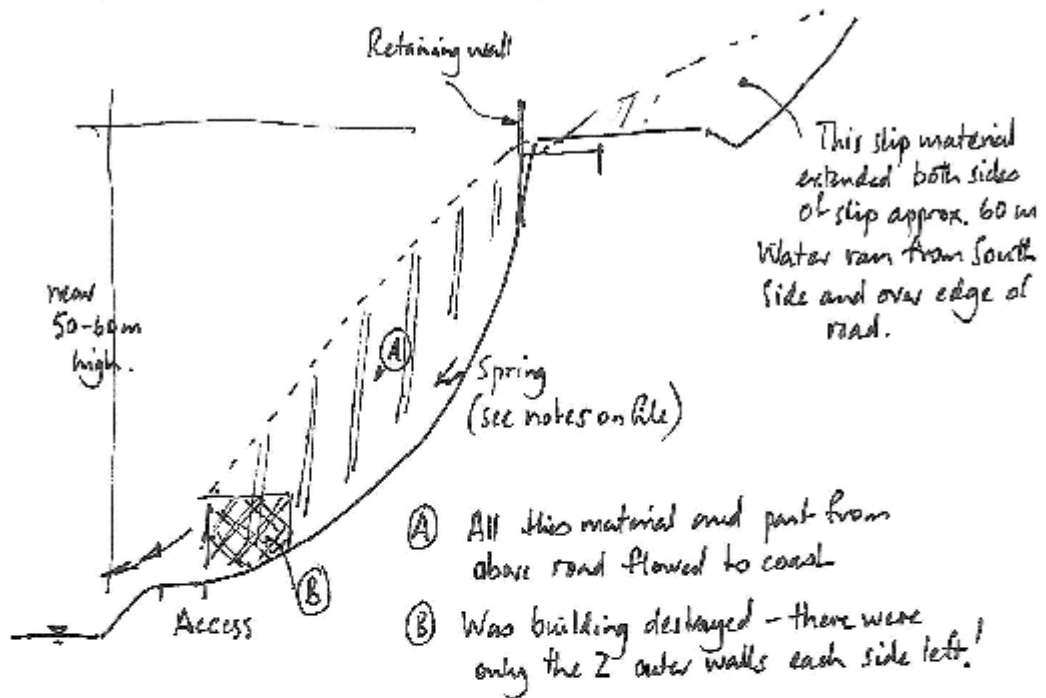 Retaining wall
This slip material
extended both sides
of slip approx. 60 m
Water ran from South
Side and over edge of
road.
near
50-60m
high.
A
Spring
(see notes on file)
A All this material and part from
above road flowed to coast
B
Access
B Was building destroyed - there were
only the 2 outer walls each side left!